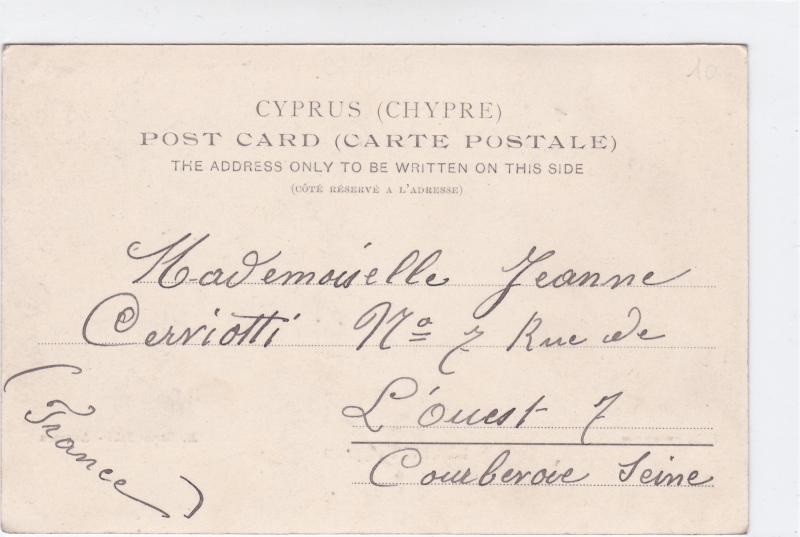 10
CYPRUS (CHYPRE)
POST CARD (CARTE POSTALE)
THE ADDRESS ONLY TO BE WRITTEN ON THIS SIDE
(CÔTÉ RÉSERVÉ A L'ADRESSE)
Mademoiselle Jeanne
Cerviotti Nº 7 Rue de
L'Ouest 7
Courbevoie Seine
(France)